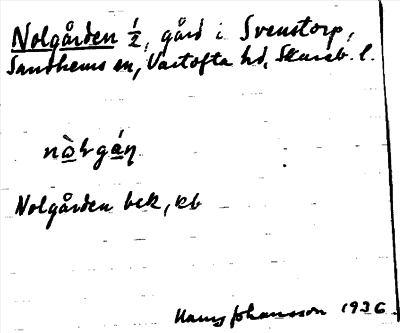 Nolgården ½, gård i Svenstorp,
Sandhems sn, Vartofta hd, Skarab. l.
nòlgáṇ
Nolgården bek, kb
Hans Johansson 1936